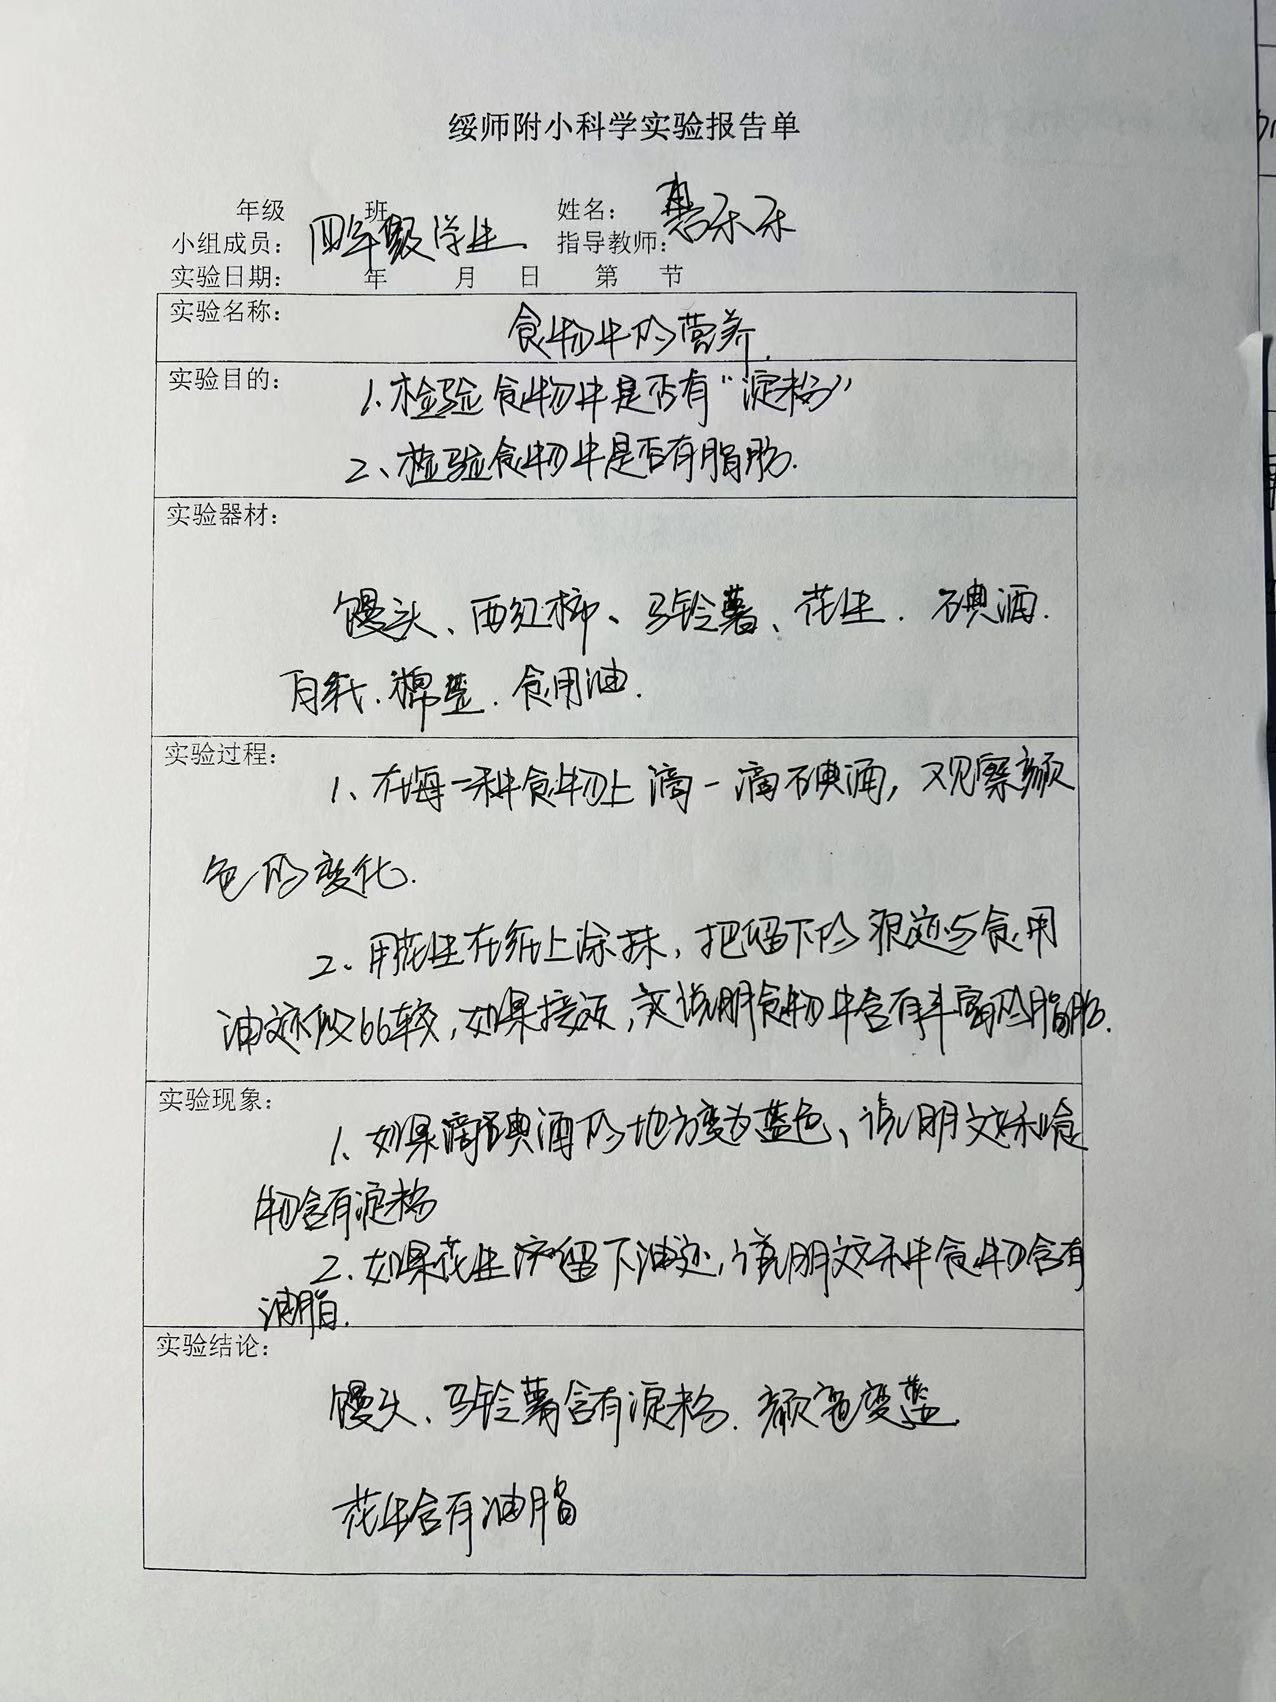 绥师附小科学实验报告单
年级 班 姓名：
小组成员：四年级学生 指导教师：惠乐乐
实验日期： 年 月 日 第 节
实验名称：
食物中的营养.
实验目的：
1、检验食物中是否有“淀粉”
2、检验食物中是否有脂肪.
实验器材：
馒头、西红柿、马铃薯、花生. 碘酒.
白纸.棉签.食用油.
实验过程：
1、在每一种食物上滴一滴碘酒，观察颜
色的变化.
2、用花生在纸上涂抹，把留下的痕迹与食用
油迹做比较，如果接近，说明食物中含有丰富的脂肪.
实验现象：
1、如果滴碘酒的地方变为蓝色、说明这种食
物含有淀粉
2、如果花生留下油迹，说明这种食物含有
油脂.
实验结论：
馒头、马铃薯含有淀粉.颜色变蓝
花生含有油脂